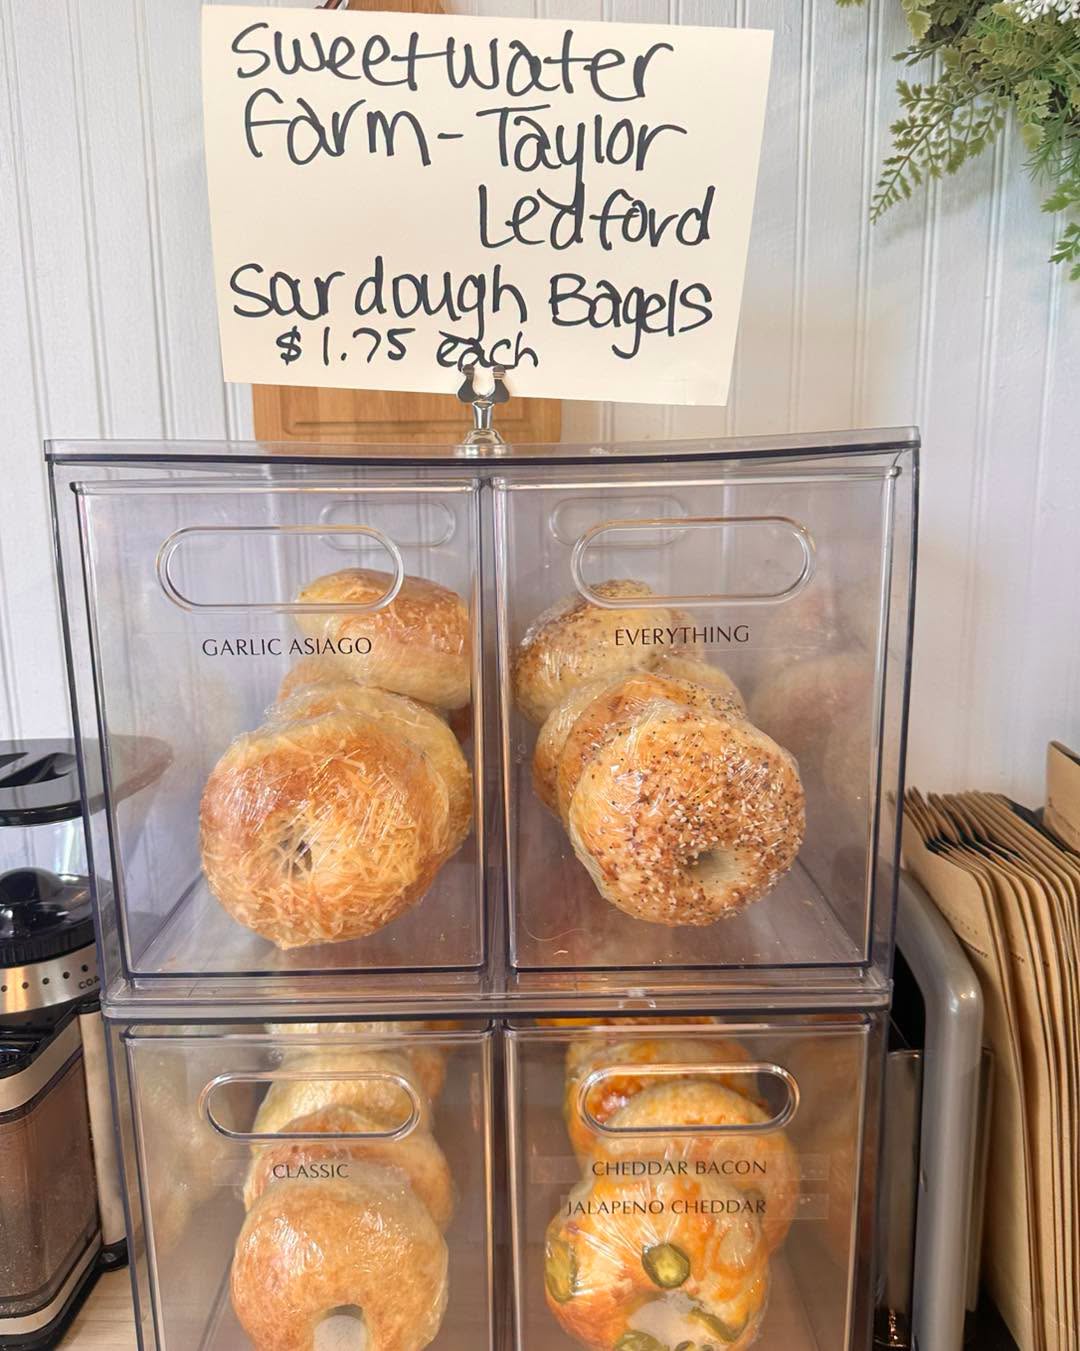 Sweetwater
Farm - Taylor
Ledford
Sourdough Bagels
$1.75 each
GARLIC ASIAGO
EVERYTHING
CLASSIC
CHEDDAR BACON
JALAPENO CHEDDAR